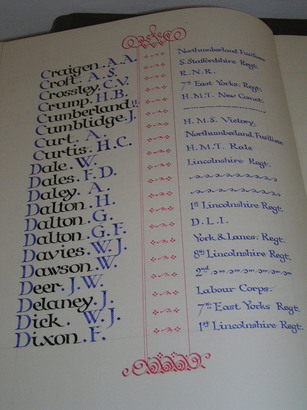 Craigen. A.A. Northumberland Fusiliers
Croft. A.S. S. Staffordshire Regt.
Crossley. C.V. R.N.R.
Crump. H.B. 7th East Yorks. Regt.
Cumberland H.M.T. New Comet.
Cumblidge. J.
Curt. A. H.M.S. Victory.
Curtis. H.C. Northumberland Fusiliers
Dale. W. H.M.T. Rale
Dales. F.D. Lincolnshire Regt.
Daley. A.
Dalton. H.
Dalton. G. 1st Lincolnshire Regt.
Dalton. G.F. D.L.I.
Davies. W.J. York & Lancs. Regt.
Dawson. W. 8th Lincolnshire Regt.
Deer. J.W. 2nd
Delaney. J. Labour Corps.
Dick. W.J. 7th East Yorks Regt.
Dixon. F. 1st Lincolnshire Regt.